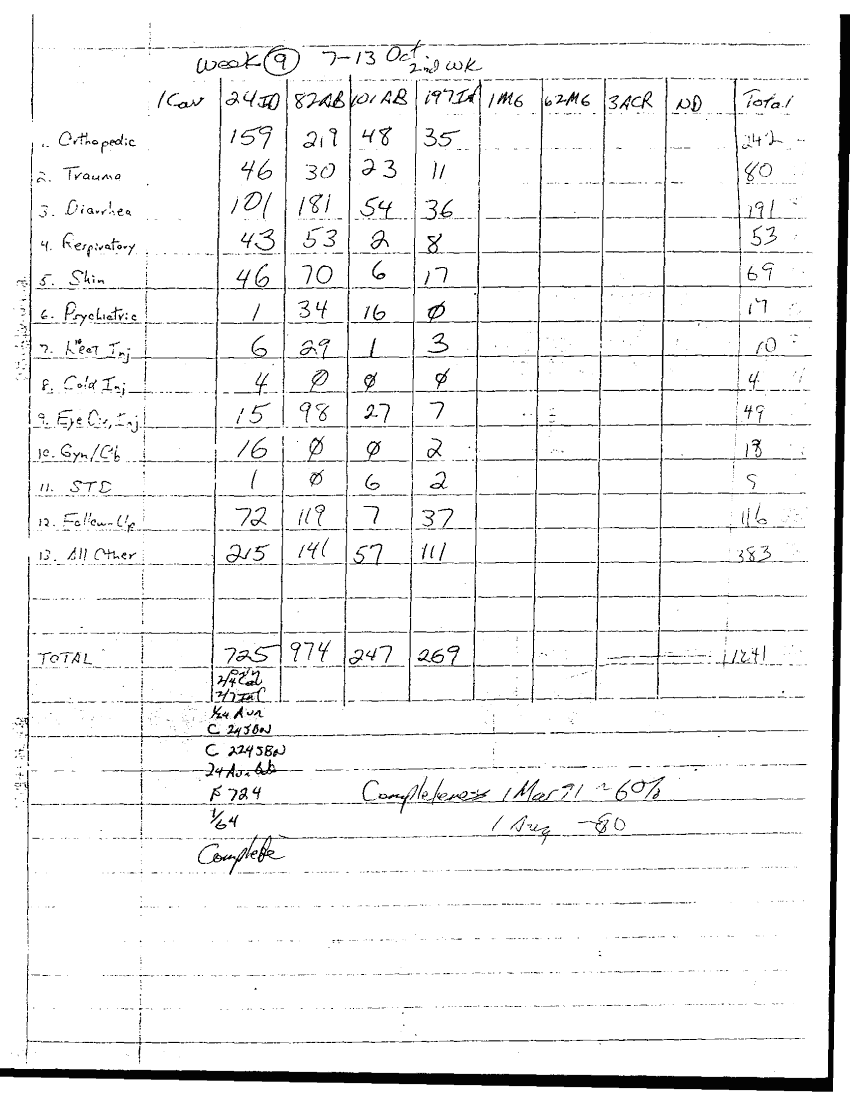 Week 9 7-13 Oct
2nd wk
1Cav 24ID 82AB 101AB 197Id 1MG 62MG 3ACR ND Total
1. Orthopedic 159 219 48 35 242
2. Trauma 46 30 23 11 80
3. Diarrhea 101 181 54 36 191
4. Respiratory 43 53 2 8 53
5. Skin 46 70 6 17 69
6. Psychiatric 1 34 16 Ø 17
7. Heat Inj 6 29 1 3 10
8. Cold Inj 4 Ø Ø Ø 4
9. Eye Dis, Inj 15 98 27 7 49
10. Gyn/Ob 16 Ø Ø 2 18
11. STD 1 Ø 6 2 9
12. Follow-Up 72 119 7 37 116
13. All Other 215 141 57 111 383
TOTAL 725 974 247 269 1241
2/4 Cal
2/7 Inf
1/24 Avn
C 24SBN
C 224SBN
24 Avn
F 724
1/64
Complete
Completeness 1 Mar 91 ~60%
1 Aug ~80